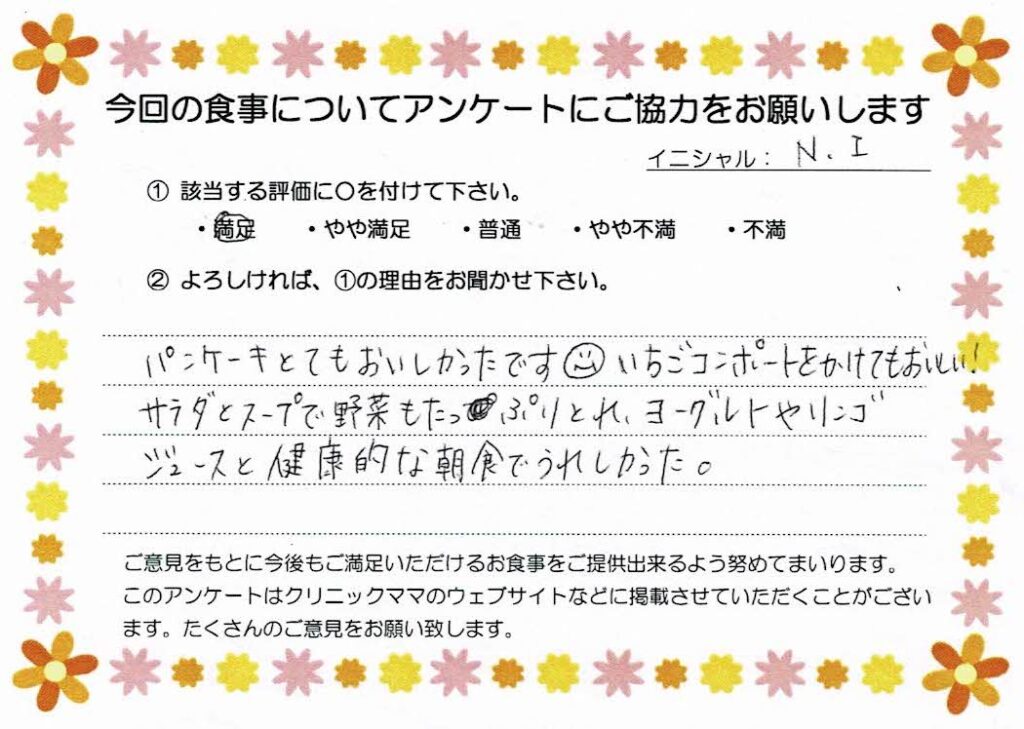 今回の食事についてアンケートにご協力をお願いします
イニシャル： N. I
① 該当する評価に〇を付けて下さい。
・満足 ・やや満足 ・普通 ・やや不満 ・不満
② よろしければ、①の理由をお聞かせ下さい。
パンケーキとてもおいしかったです☺いちごコンポートをかけてもおいしい!
サラダとスープで野菜もたっぷりとれ、ヨーグルトやリンゴ
ジュースと健康的な朝食でうれしかった。
ご意見をもとに今後もご満足いただけるお食事をご提供出来るよう努めてまいります。
このアンケートはクリニックママのウェブサイトなどに掲載させていただくことがござい
ます。たくさんのご意見をお願い致します。